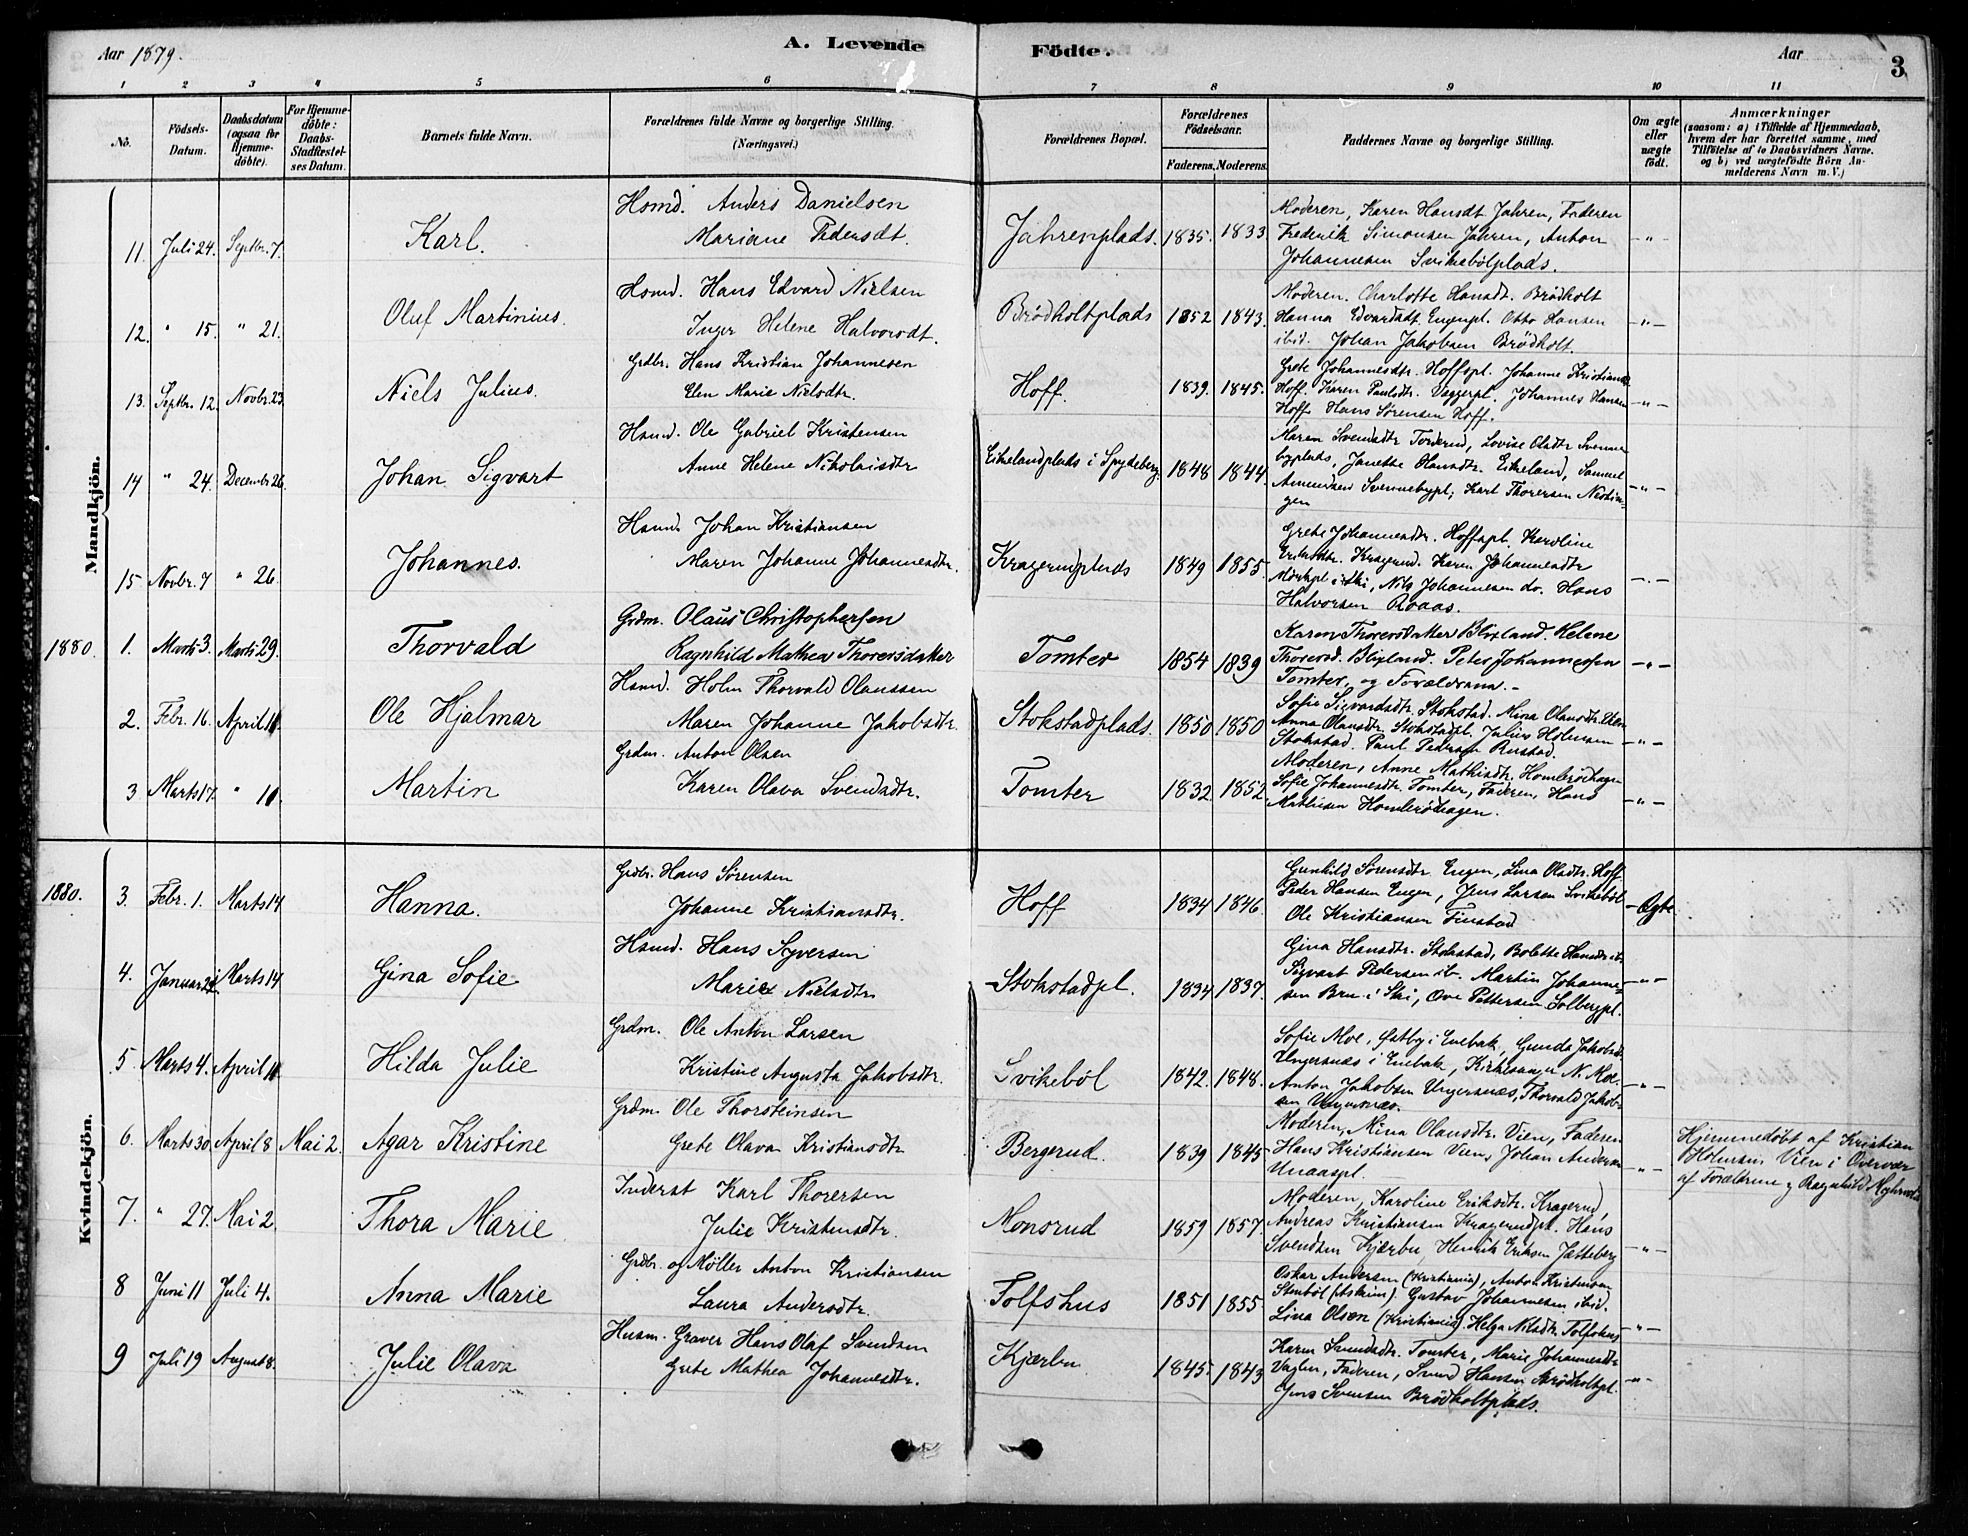 Aar 1879.
A. Levende
Födte.
Aar
3
1 2 3 4 5 6 7 8 9 10 11
No.
Födsels-Datum.
Daabsdatum (ogsaa för Hjemme-döbte).
For Hjemme-döbte: Daabs-Stadfæstel-ses Datum.
Barnets fulde Navn.
Forældrenes fulde Navne og borgerlige Stilling. (Næringsvei.)
Forældrenes Bopæl.
Forældrenes Födselsaar.
Faderens. Moderens.
Faddernes Navne og borgerlige Stilling.
Om ægte eller uægte födt.
Anmærkninger
(saasom: a) i Tilfælde af Hjemmedaab,
hvem der har forrettet samme, med
Tilföielse af to Daabsvidners Navne.
og b) ved uægtefödte Börn An-
melderens Navn m. V.)
Mandkjön.
11. Juli 24. Septbr. 7. Karl. Hsmd. Anders Danielsen
Mariane Pedersdt. Jahrenplads. 1835. 1833
Moderen, Karen Hansdt Jahren, Faderen
Frederik Simonsen Jahren, Anton
Johannesen Svikebölplads.
12. " 15. " 21. Oluf Martinius. Hsmd. Hans Edvard Nielsen
Inger Helene Halvorsdt. Brødholtplads 1852 1843.
Moderen. Charlotte Hansdt. Brödholt
Hanna Edvardsdt. Engenpl. Otto Hansen
ibid. Johan Jakobsen Brödholt.
13. Septbr. 12. Novbr. 23. Niels Julius. Grdbr. Hans Kristian Johannesen
Elen Marie Nielsdtr. Hoff. 1839. 1845.
Grete Johannesdtr. Hoffspl. Johanne Kristiansd.
Hoff. Karen Paulsdtr. Vaggerpl. Johannes Hansen
Hoff. Hans Sörensen Hoff.
14 " 24. Decembr 26. Johan Sigvart Hsmd. Ole Gabriel Kristensen
Anne Helene Nikolaisdtr Eikelandplads i Spydeberg. 1848 1844.
Maren Svendsdtr Torderud, Lovise Olsdtr Svenne
byplads, Janette Olausdtr. Eikeland, Samuel
Amundsen Svennebypl, Karl Thoresen
gen
15 Novbr. 7 " 26. Johannes. Hsmd. Johan Kristiansen
Maren Johanne Johannesdtr. Kragerudplads 1849 1855.
Grete Johannesdtr. Hoffspl. Karoline
Eriksdtr. Kragerud. Karen Johannesdtr
Mörkpl i Ski, Nils Johannesen do. Hans
Halvorsen Roaas.
1880. 1. Marts 3. Marts 29. Thorvald Grdm. Olaus Christophersen
Ragnhild Mathea Thoresdaker Tomter 1854 1839
Karen Thoresdaker Blixland. Helene
Thoresd. Blixland. Peter Johannessen
Tomter, og Forældrene.
2. Febr. 16. April 11. Ole Hjalmar Hsmd. Holm Thorvald Olaussen
Maren Johanne Jakobsdtr. Stokstadplads. 1850 1850
Sofie Sigvardsdtr. Stokstad. Mina Olausdtr.
Anna Olausdtr. Stokstadpl. Julius Holmsen
Stokstad. Paul Pedersen Rustad.
3 Marts 17. " 11. Martin Grdm. Anton Olsen
Karen Olava Svendsdtr. Tomter 1832 1852
Moderen, Anne Mathisdtr. Homlerödhagen
Sofie Johannesdtr. Tomter, Faderen, Hans
Mathisen Homlerödhagen.
Kvindekjön.
1880. 3. Febr. 1. Marts 14 Hanna. Grdbr. Hans Sörensen
Johanne Kristiansdtr. Hoff 1834 1846.
Gunhild Sörensdtr Engen, Lina Olsdtr. Hoff
Peder Hansen Engen, Jens Larsen Svikeböl
Ole Kristiansen Finstad
Ægte
4. Januar 24. Marts 14 Gina Sofie Hsmd. Hans Syversen
Marie Nielsdtr Stokstadpl. 1834 1837.
Gina Hansdtr. Stokstad, Bolette Hansdtr ib.
Sigvart Pedersen ib. Martin Johanne-
sen Bru i Ski, Ove Pettersen Solbergpl.
5 Marts 4. April 11 Hilda Julie Grdm. Ole Anton Larsen
Kristine Augusta Jakobsdtr. Svikeböl 1842. 1848.
Sofie Moe, Østby i Enebak, Gunda Jakobsd.
Ungersnæs i Enebak, Kirkesanger N. Moe
Anton Jakobsen Ungersnæs, Thorvald Jakob-
sen Ungersnæs.
6. Marts 30 April 8 Mai 2. Agar Kristine Grdm. Ole Thorsteinsen
Grete Olava Kristiansdtr Bergerud. 1839 1845
Moderen, Mina Olausdtr. Vien, Faderen
Hans Kristiansen Vien, Johan Andersen
Unaaspl.
Hjemmedöbt af Kristian
Holmsen Vien i Overvær
af Forældrene og Ragnhild
7. " 27. Mai 2. Thora Marie Inderst Karl Thorersen
Julie Kristensdtr. Monsrud 1859 1857.
Moderen, Karoline Eriksdtr. Kragerud,
Andreas Kristiansen Kragerudpl. Hans
Svendsen Kjærbu, Henrik Eriksen Jætteberg
8 Juni 11 Juli 4. Anna Marie Grdbr. og Møller Anton Kristiansen
Laura Andersdtr. Tolfshus 1851 1855
Oskar Andersen (Kristiania), Anton Kristiansen
Stenböl (Askim). Gustav Johannesen ibid.
Lina Olsen (Kristiania) Helga Nilsdtr Tolfshus
9 Juli 19 August 8. Julie Olava Husm. Graver Hans Olaf Svendsen
Grete Mathea Johannesdtr. Kjærbu 1845. 1843
Karen Svendsdtr. Tomter, Marie Johannesdtr
Vagler, Faderen, Svend Hansen Brödholtpl.
Jens Svensen Brödholtplads.